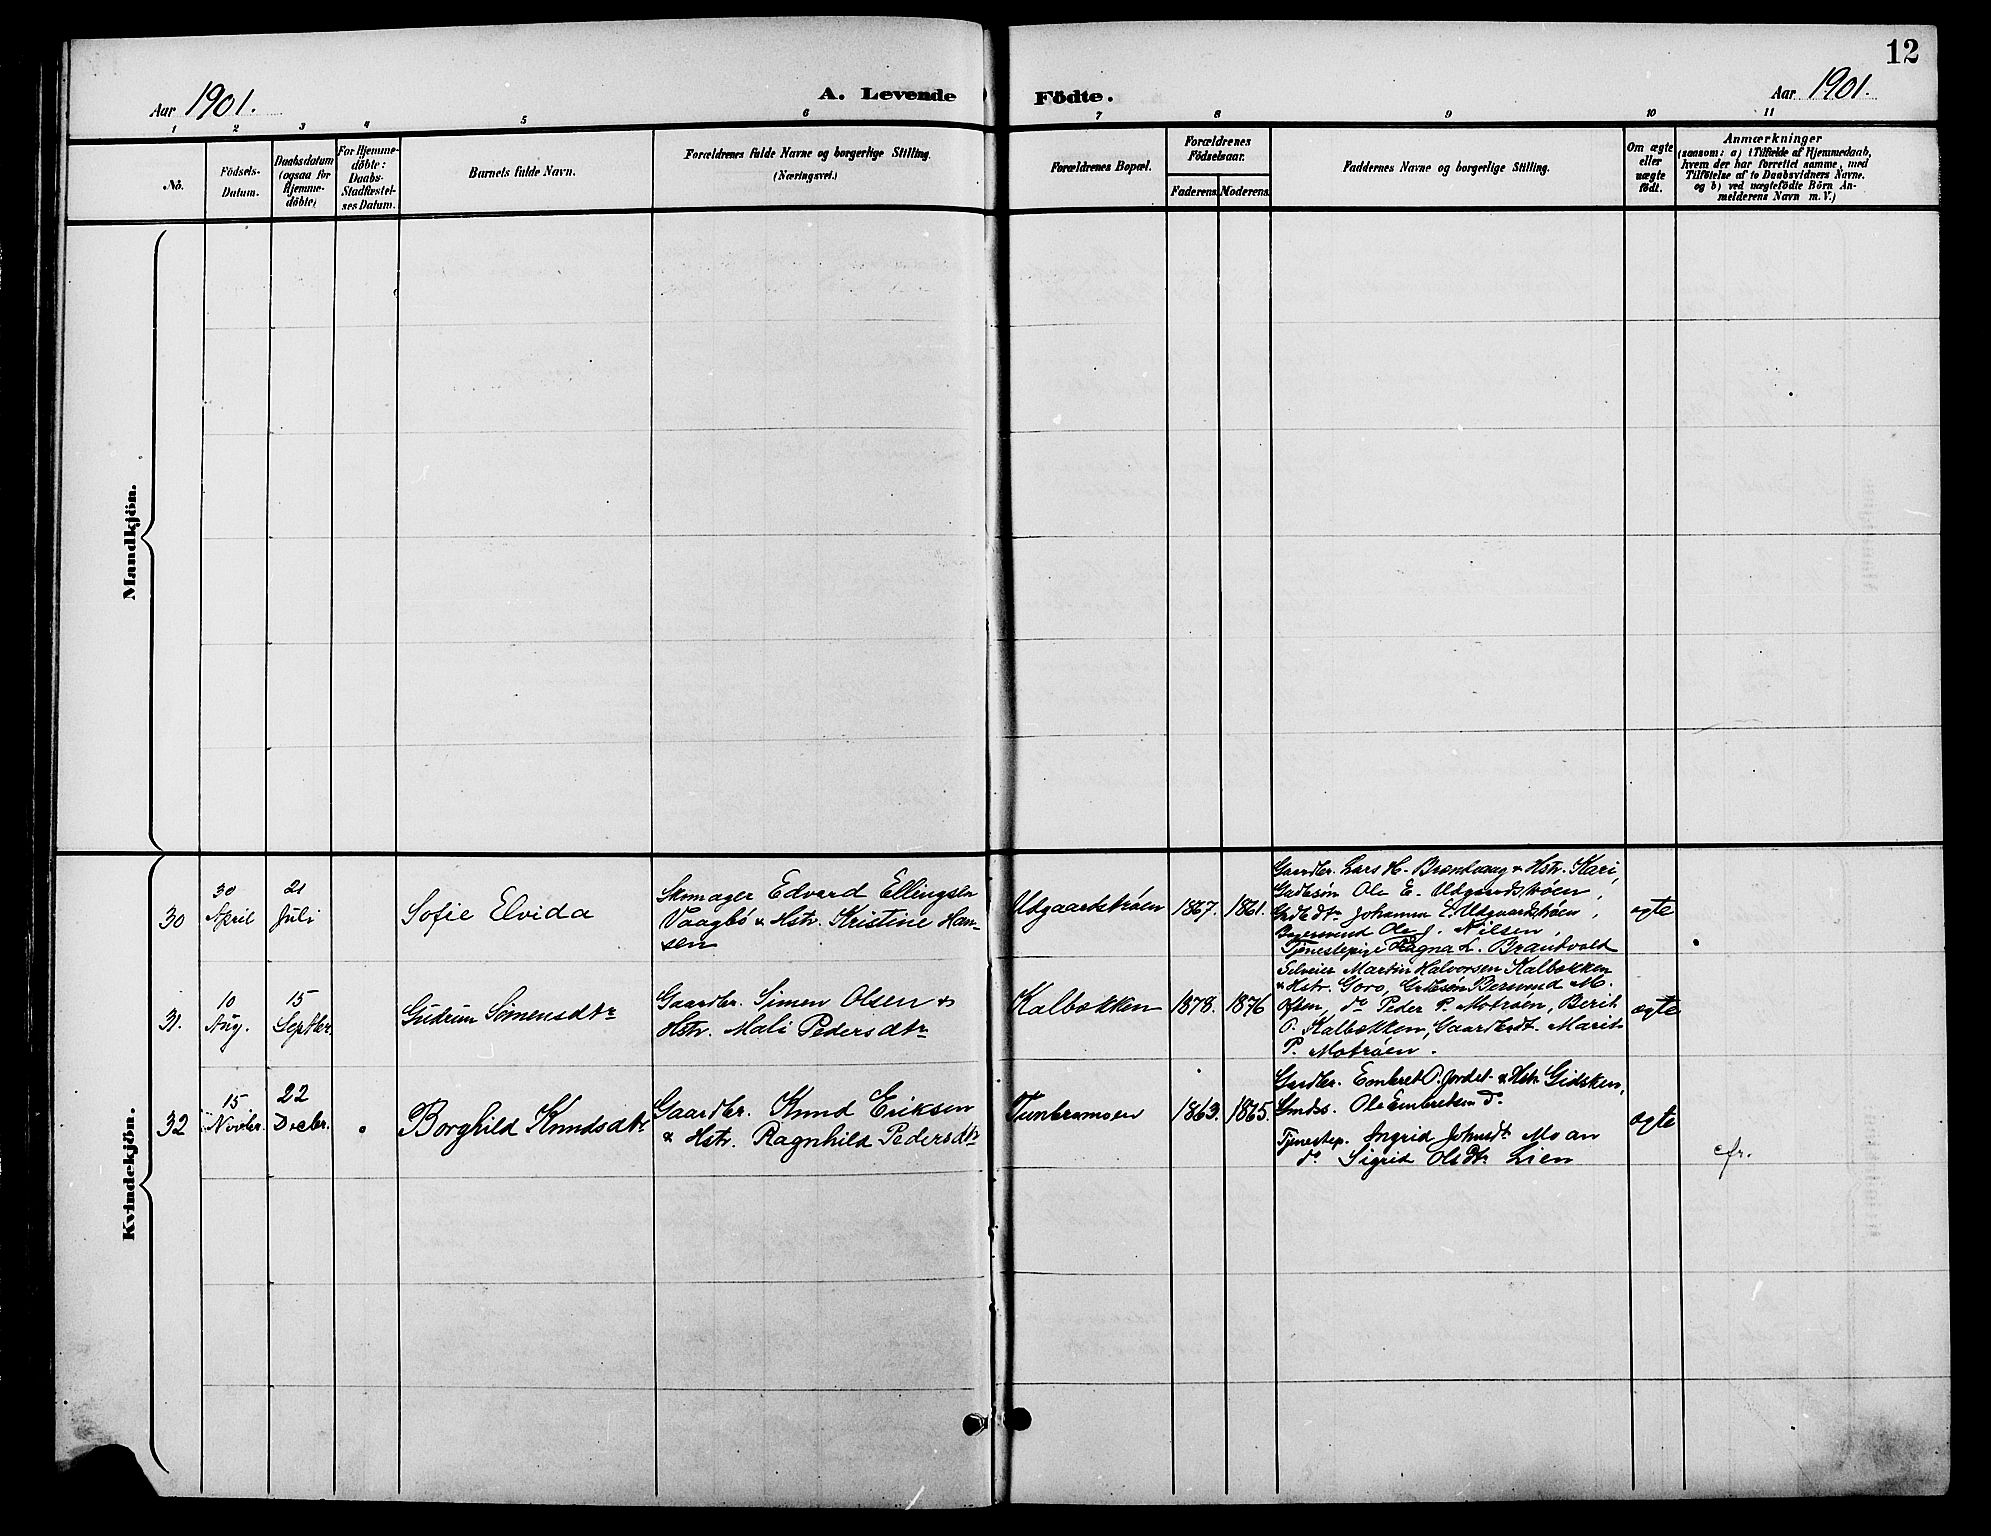 12
Aar 1901.
A. Levende Födte.
Aar 1901.
1 2 3 4 5 6 7 8 9 10 11
No.
Födsels-
Datum.
Daabsdatum
(ogsaa for
Hjemme-
döbte)
For Hjemme-
döbte:
Daabs-
Stadfæstel-
ses Datum.
Barnets fulde Navn.
Forældrenes fulde Navne og borgerlige Stilling.
(Næringsvei.)
Forældrenes Bopæl.
Forældrenes
Födselsaar.
Faderens. Moderens.
Faddernes Navne og borgerlige Stilling.
Om ægte
eller
uægte
födt.
Anmærkninger
(saasom: a) i Tilfælde af Hjemmedaab,
hvem der har forrettet samme, med
Tilföielse af to Daabsvidners Navne.
og b) ved uægtefödte Börn An-
melderens Navn m. V.)
Mandkjön.
Kvindekjön.
30
30
April
21
Juli
Sofie Elvida
Skomager Edvard Ellingsen
Vaagbö & Hstr. Kristine Han-
sen
Udgaardstrøen
1867. 1861.
Gaardbr. Lars H. Brændvang & Hstr. Kari,
Gadesön Ole E. Udgaardstrøen,
Johanna E. Udgaardstrøen,
Ole J. Nilsen,
Tjenestepige Ragna L. Brautvold
ægte
31.
10
Aug.
15
Septbr.
Gudrun Simensdtr
Gaardbr. Simen Olsen &
Hstr. Mali Pedersdtr
Kalbækken
1878. 1876
Selveier Martin Halvorsen Kalbækken
& Hstr. Goro, Bersvend M.
do Peder P. Motrøen, Berit
O. Kalbækken, Marit
P. Motrøen.
ægte
32
15
Novbr.
22
Decbr.
Borghild Knudsdtr
Gaardbr. Knud Eriksen
& Hstr. Ragnhild Pedersdtr
Tunbramoen
1863. 1865.
Gardbr. Embret O. Jordet & Hstr Gidsken,
Ole Embretsen do
Tjenestep. Ingrid Johnsdtr Moan
do Sigrid Olsdtr Lien
ægte
cfr.